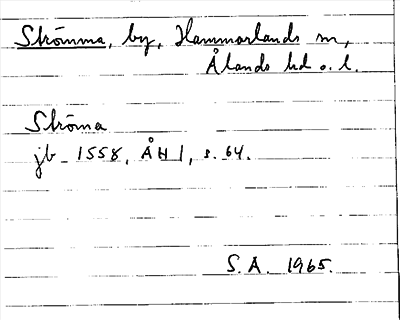 Strömma, by, Hammarlands sn,
Ålands hd o. l.
Ströma
jb 1558, ÅH I, s. 64.
S.A. 1965.